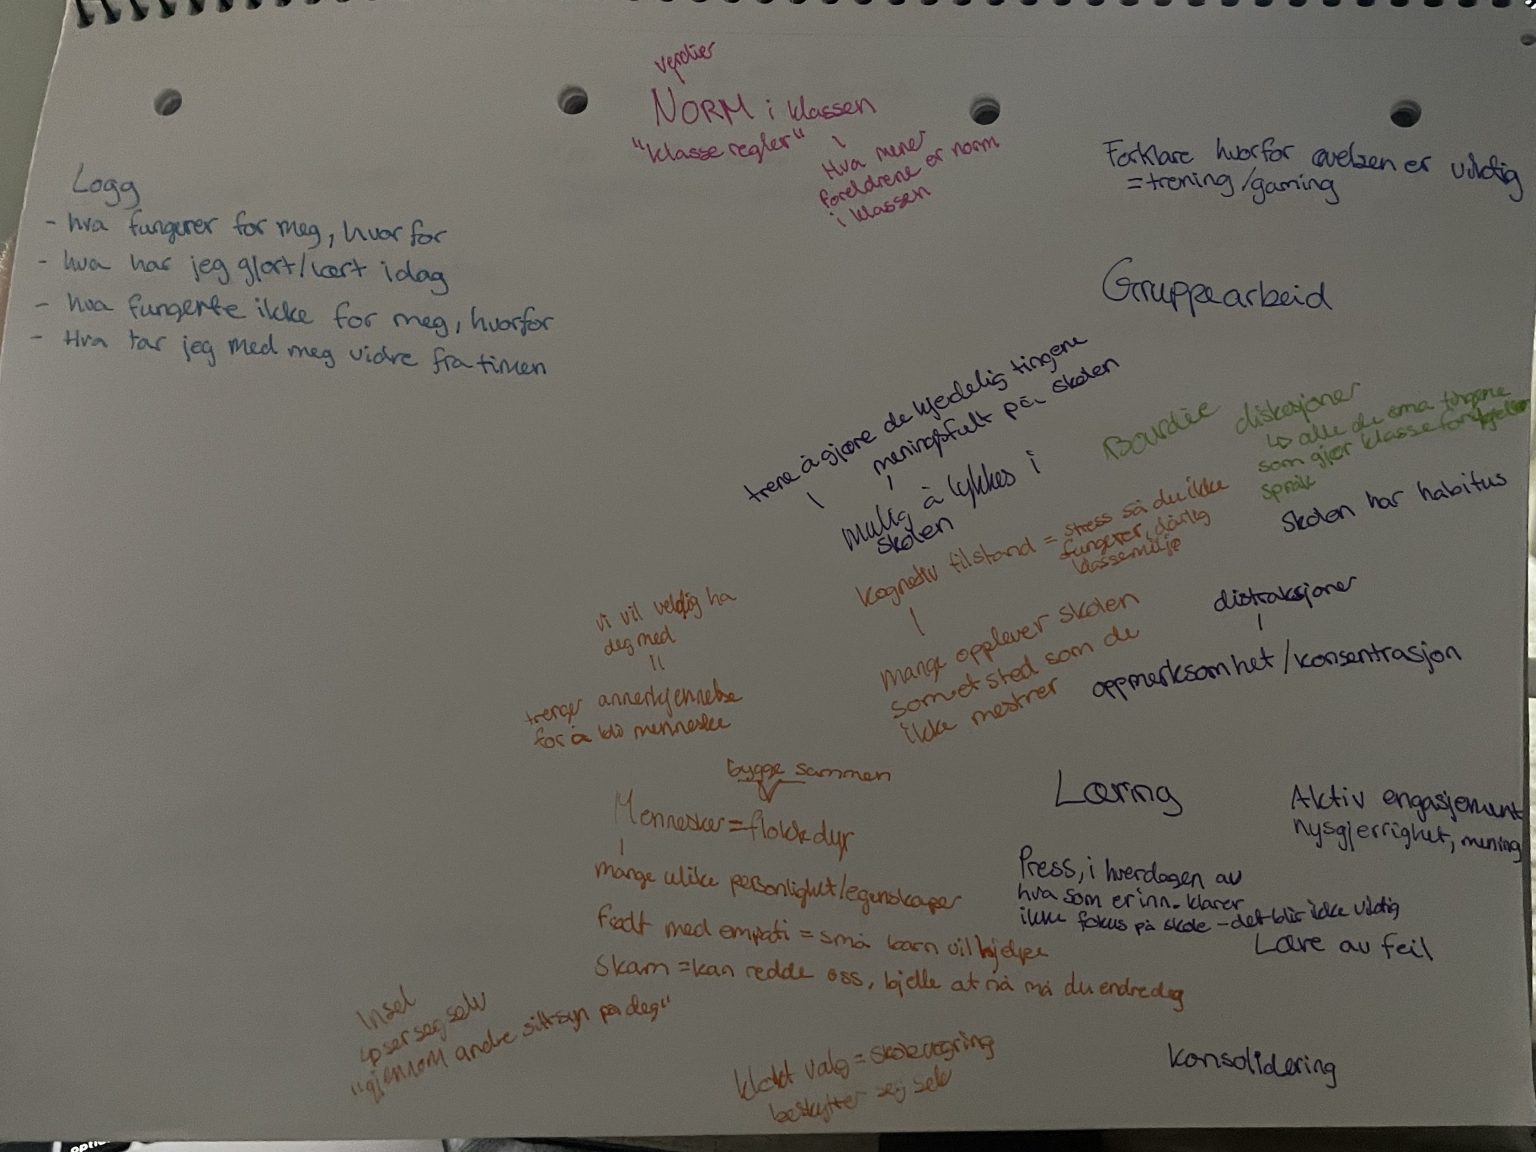 verdier
NORM i klassen
"klasse regler"
Hva mener
foreldrene er norm
i klassen
Logg
- hva fungerer for meg, hvorfor
- hva har jeg gjort/lært idag
- hva fungerte ikke for meg, hvorfor
- Hva tar jeg med meg vidre fra timen
Forklare hvorfor øvelsen er viktig
= trening/gaming
Gruppearbeid
trene å gjøre de kjedelig tingene
meningsfult på skolen
mulig å lykkes i
skolen
Bourdie
diskosjoner
↳ alle de små tingene
som gjør klasseforskjeller
språk
Skolen har habitus
kognetiv tilstand = stress så du ikke
fungerer, dårlig
klassemiljø
mange opplever skolen
som et sted som de
ikke mestrer
distraksjoner
oppmerksomhet/konsentrasjon
vi vil veldig ha
deg med
=
trenger annerkjennelse
for å bli menneske
bygge sammen
Mennesker = flokkdyr
mange ulike personlighet/egenskaper
Født med empati = små barn vil hjelpe
Skam = kan redde oss, bjelle at nå må du endre deg
Insel
↳ ser seg selv
"gjennom andre sitt syn på deg"
klokt valg = skolevegring
beskytter seg selv
Læring
Aktiv engasjement
nysgjerrighet, mening
Press, i hverdagen av
hva som er inn. klarer
ikke fokus på skole - det blir ikke viktig
Lære av feil
konsolidering
option